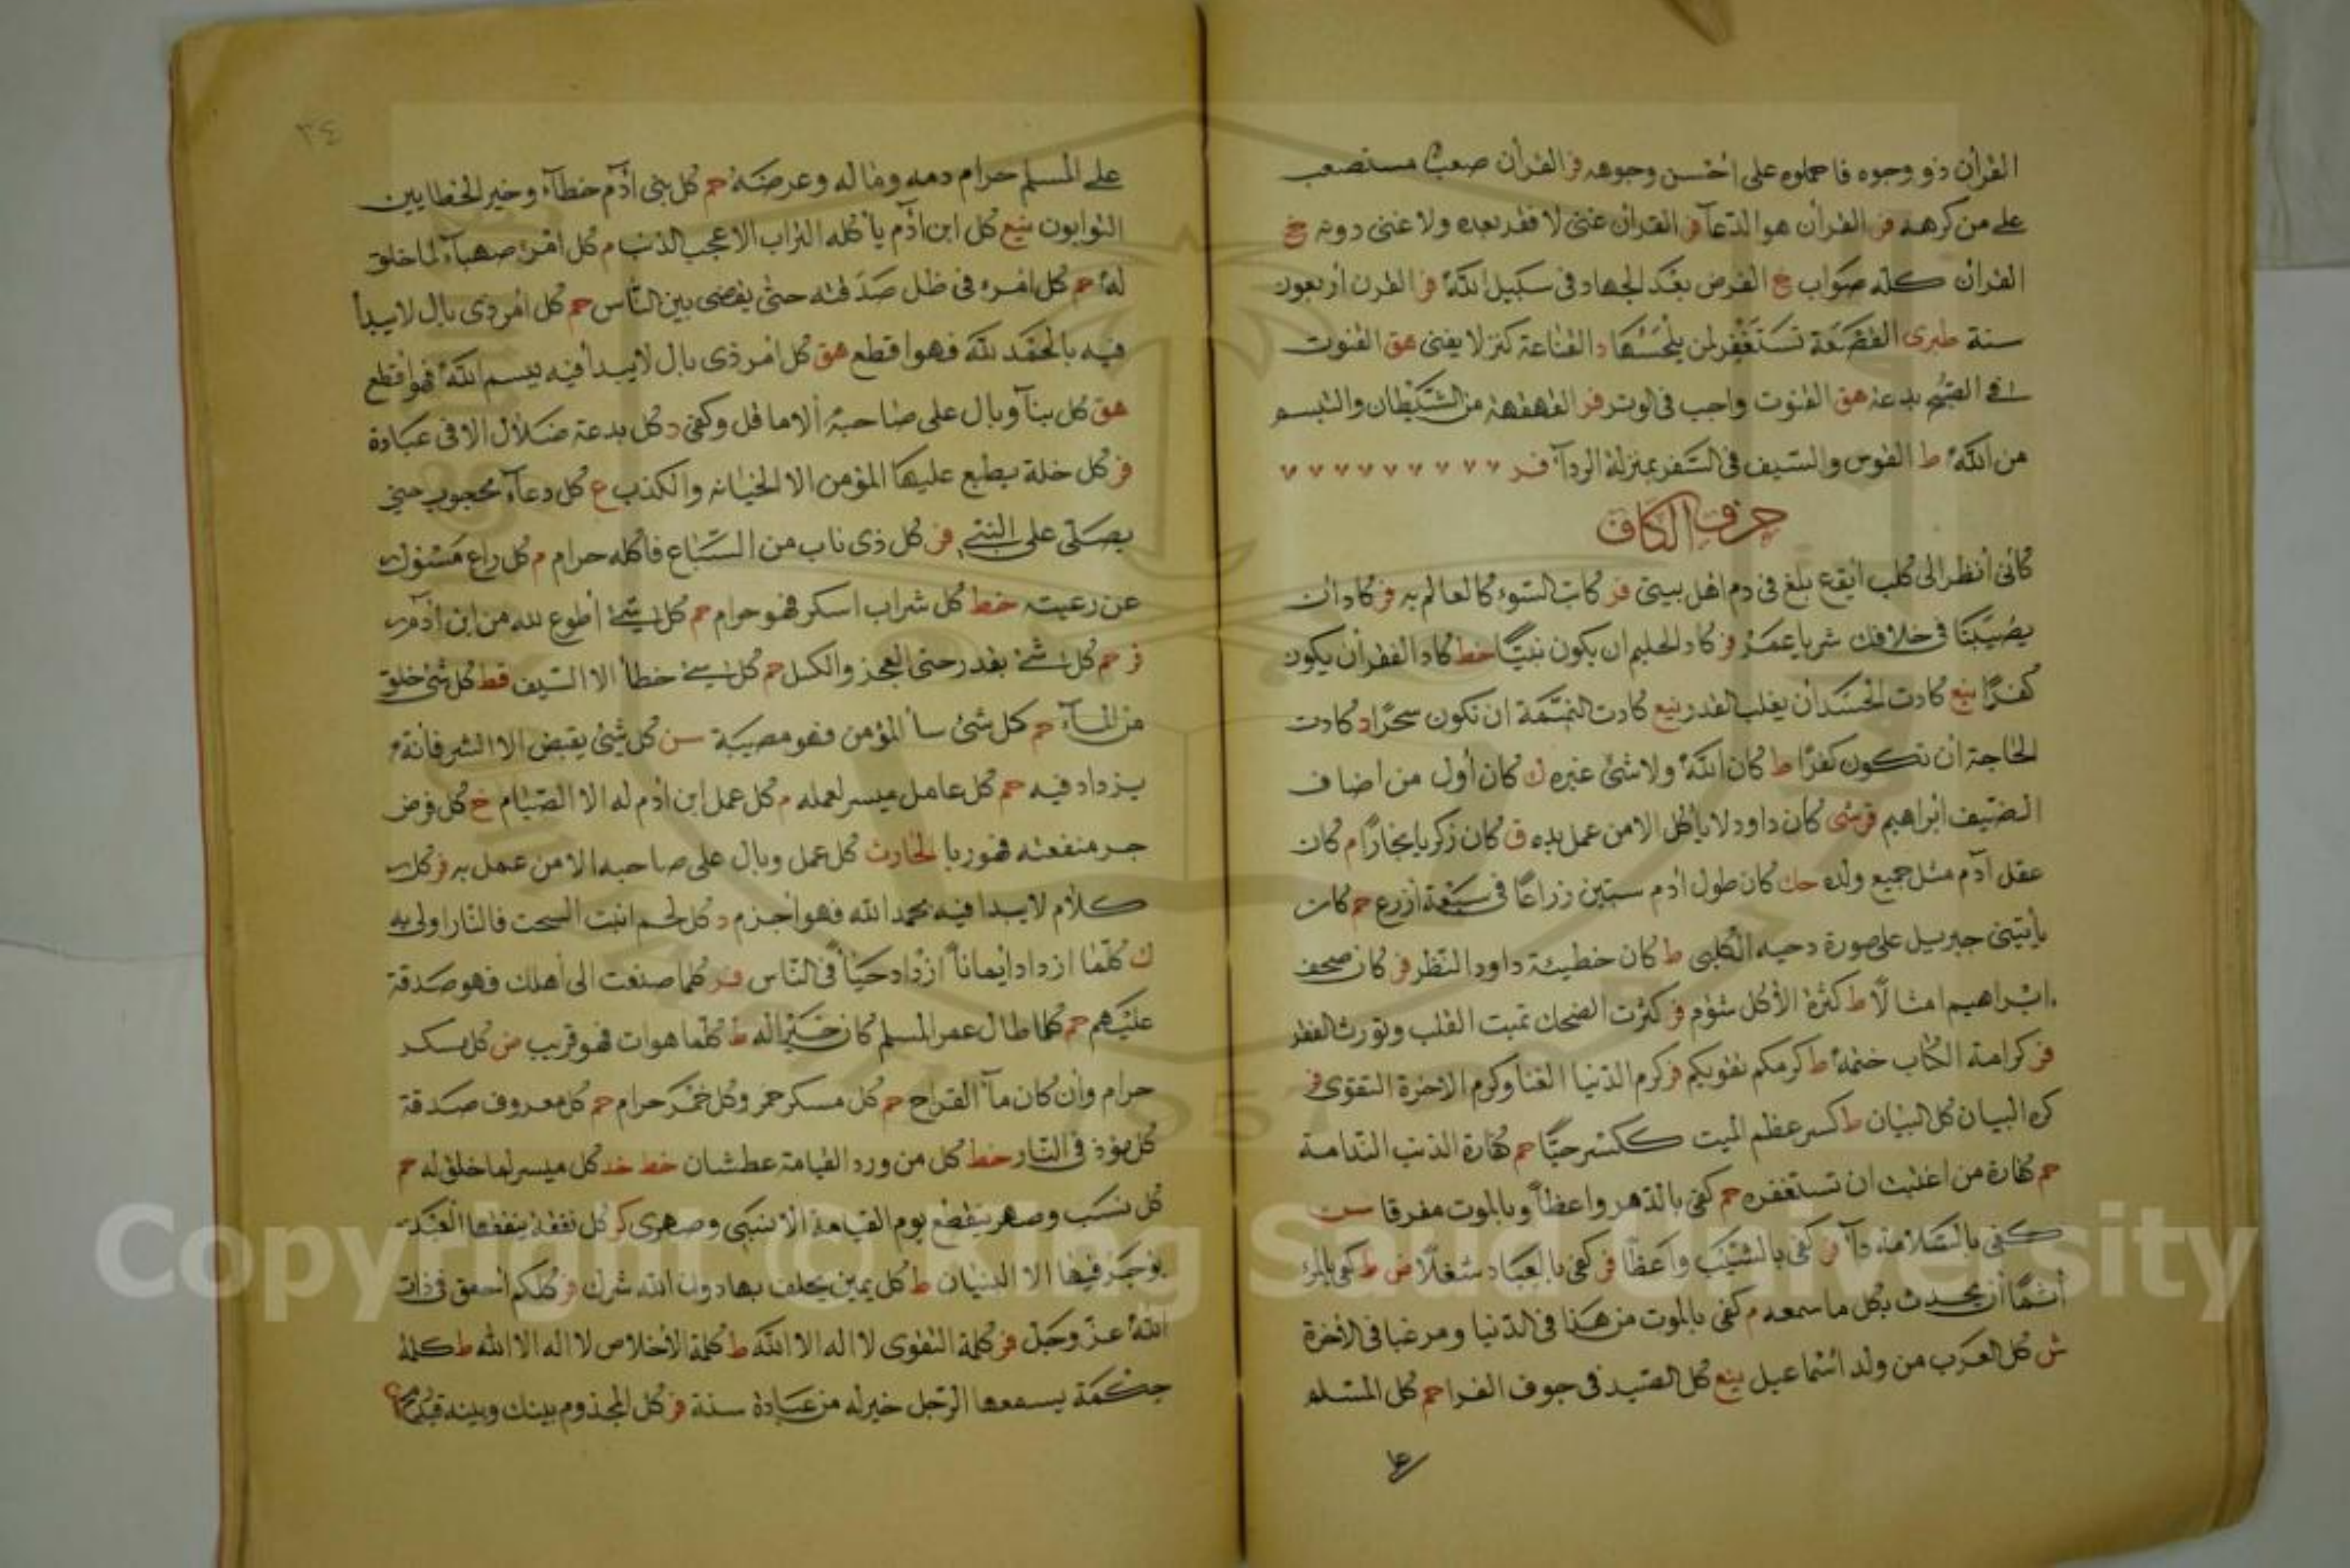 القرآن ذو وجوه فاحملوه على احسن وجوهه فر القرآن صعب مستصعب
على من كرهه فر القرأن هو الدعآ فر القرآن غنى لا فقر بعده ولا غنى دونه خ
القرآن كله صواب خ القرض بعد الجهاد فى سبيل الله فر القرن اربعون
سنة طبرى القصعة تستغفر لمن يلحسها د القناعة كنز لا يفنى هق القنوت
فى الصبح بدعة هق القنوت واجب فى الوتر فر القهقهة من الشيطان والتبسم
من الله ط القوس والسيف فى السفر بمنزلة الردآ فر
حرف الكاف
كأنى أنظر الى كلب ابقع يلغ فى دم اهل بيتى فر كاتب السوء كالعالم به فر كاد ان
يصيبنا فى خلافك شر يا عمر فر كاد الحليم ان يكون نبيًّا خط كاد الفقر أن يكون
كفرًا ينع كادت الحسد أن يغلب القدر ينع كادت النميمة ان تكون سحرًا د كادت
الحاجة ان تكون كفرًا ط كان الله ولا شئ غيره ك كان أول من اضاف
الضيف ابراهيم قرشى كان داود لا يأكل الا من عمل يده ق كان زكريا نجارًا م كان
عقل آدم مثل جميع ولده حك كان طول ادم ستين ذراعًا فى سبعة أذرع حم كان
يأتينى جبريل على صورة دحيه الكلبى ط كان خطيئة داود النظر فر كان صحف
ابراهيم امثالًا ط كثرة الأكل شؤم فر كثرت الضحك تميت القلب وتورث الفقر
فر كرامة الكتاب ختمه ط كرمكم تقويكم فر كرم الدنيا الغنا وكرم الاخرة التقوى فر
كره البيان كل البيان ط كسر عظم الميت ككسر حيًّا حم كفارة الذنب الندامة
حم كفارة من اغتبت ان تستغفره حم كفى بالدهر واعظاً وبالموت مفرقا سن
كفى بالسلامة دآ فر كفى بالشيب واعظًا فر كفى بالعباد شغلًا ض ط كفى بالمرء
أثمًا أن يحدث بكل ما سمعه م كفى بالموت من هذا فى الدنيا ومرغبا فى الأخرة
ش كل العرب من ولد اسماعيل ينع كل الصيد فى جوف الفرا حم كل المسلم
على
٣٤
على المسلم حرام دمه وماله وعرضه حم كل بنى آدم خطآء وخير الخطايين
التوابون ينع كل ابن آدم يأكله التراب الا عجب الذنب م كل امرء مهيأ لما خلق
له حم كل امرء فى ظل صدقته حتى يقضى بين الناس حم كل امر ذى بال لا يبدأ
فيه بالحمد لله فهو اقطع هق كل امر ذى بال لا يبدأ فيه ببسم الله فهو اقطع
هق كل بنآ وبال على صاحبه الا ما قل وكفى د كل بدعة ضلال الا فى عبادة
فر كل خلة يطبع عليها المؤمن الا الخيانه والكذب ع كل دعآء محجوب حتى
يصلى على النبى فر كل ذى ناب من السباع فاكله حرام م كل راع مسؤل
عن رعيته خط كل شراب اسكر فهو حرام حم كل شئ أطوع لله من ابن آدم
فر حم كل شئ بقدر حتى العجز والكسل حم كل شئ خطأ الا السيف قط كل شئ خلق
من المآء حم كل شئ سأ المؤمن فهو مصيبة سن كل شئ يقبض الا الشر فانه
يزداد فيه حم كل عامل ميسر لعمله م كل عمل ابن ادم له الا الصيام خ كل قرض
جر منفعته فهو ربا الحارث كل عمل وبال على صاحبه الا من عمل به فر كل
كلام لا يبدا فيه بحمد الله فهو أجزم د كل لحم انبت السحت فالنار اولى به
ك كلما ازداد ايماناً ازداد حيآً فى الناس فر كلما صنعت الى أهلك فهو صدقة
عليهم حم كلما طال عمر المسلم كان خيرًا له ط كلما هوآت فهو قريب ض كل مسكر
حرام وأن كان مآ القراح حم كل مسكر خمر وكل خمر حرام حم كل معروف صدقة
كل مؤذ فى النار خط كل من ورد القيامة عطشان خط خد كل ميسر لما خلق له حم
كل نسب وصهر ينقطع يوم القيامة الا نسبى وصهرى كر كل نفقة ينفقها العبد
يوجر فيها الا البنيان ط كل يمين يحلف بها دون الله شرك فر كلكم احمق فى ذات
الله عز وجل فر كلمة التقوى لا اله الا الله ط كلمة الاخلاص لا اله الا الله ط كلمة
حكمة يسمعها الرجل خير له من عبادة سنة فر كل المجذوم بينك وبينه قيد رمح